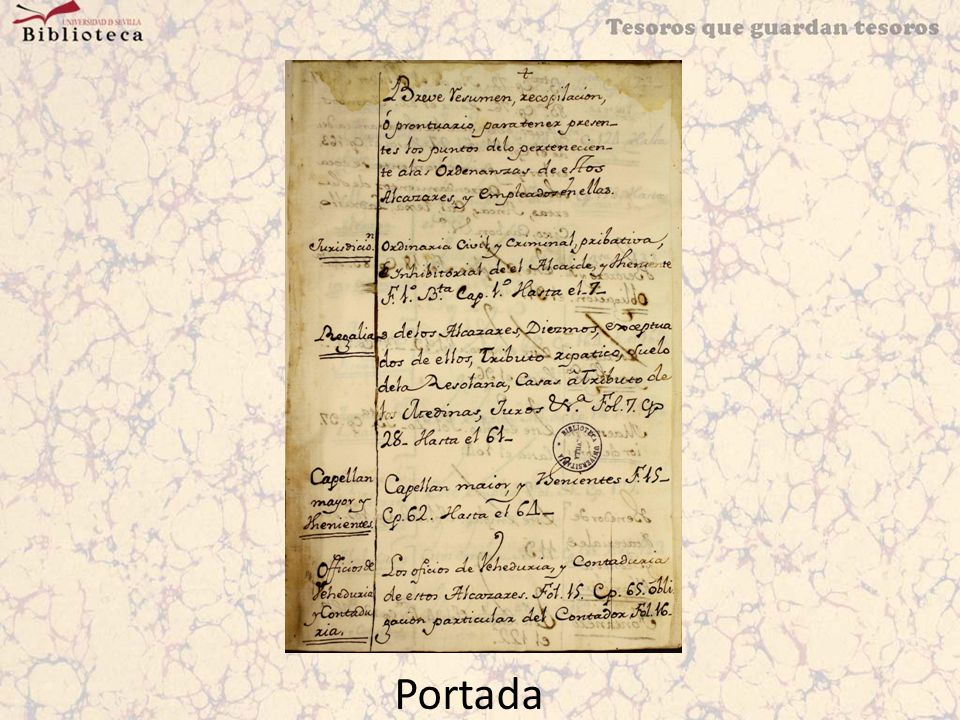 UNIVERSIDAD D SEVILLA
Biblioteca
Tesoros que guardan tesoros
+
Breve resumen, recopilacion,
ó prontuario, para tener presen-
tes los puntos delo pertenecien-
te alas Órdenanzas de estos
Alcazares, y Empleados en ellas.
Jurisdicion. Ordinaria Civil, y Criminal, pribativa,
é Inhibitorial de el Alcaide, y Theniente
F. 1.º B.ta Cap. 1.º Hasta el 7-
Regalias delos Alcazares, Diezmos, exceptua
dos de ellos, Tributo , suelo
dela Resolana, Casas a Tributo de
las Atedinas, Juros &.a Fol. 7. Cp
28. Hasta el 61-
BIBLIOTECA UNIVERSITARIA SEVILLA
Capellan
mayor y
Thenientes
Capellan maior, y Thenientes F. 15-
Cp. 62. Hasta el 64-
Officios de
Veheduria
y Contadu
ria.
Los oficios de Veheduria, y Contaduria
de estos Alcazares. Fol. 15. Cp. 65. obli
gacion particular del Contador Fol. 16.
Portada